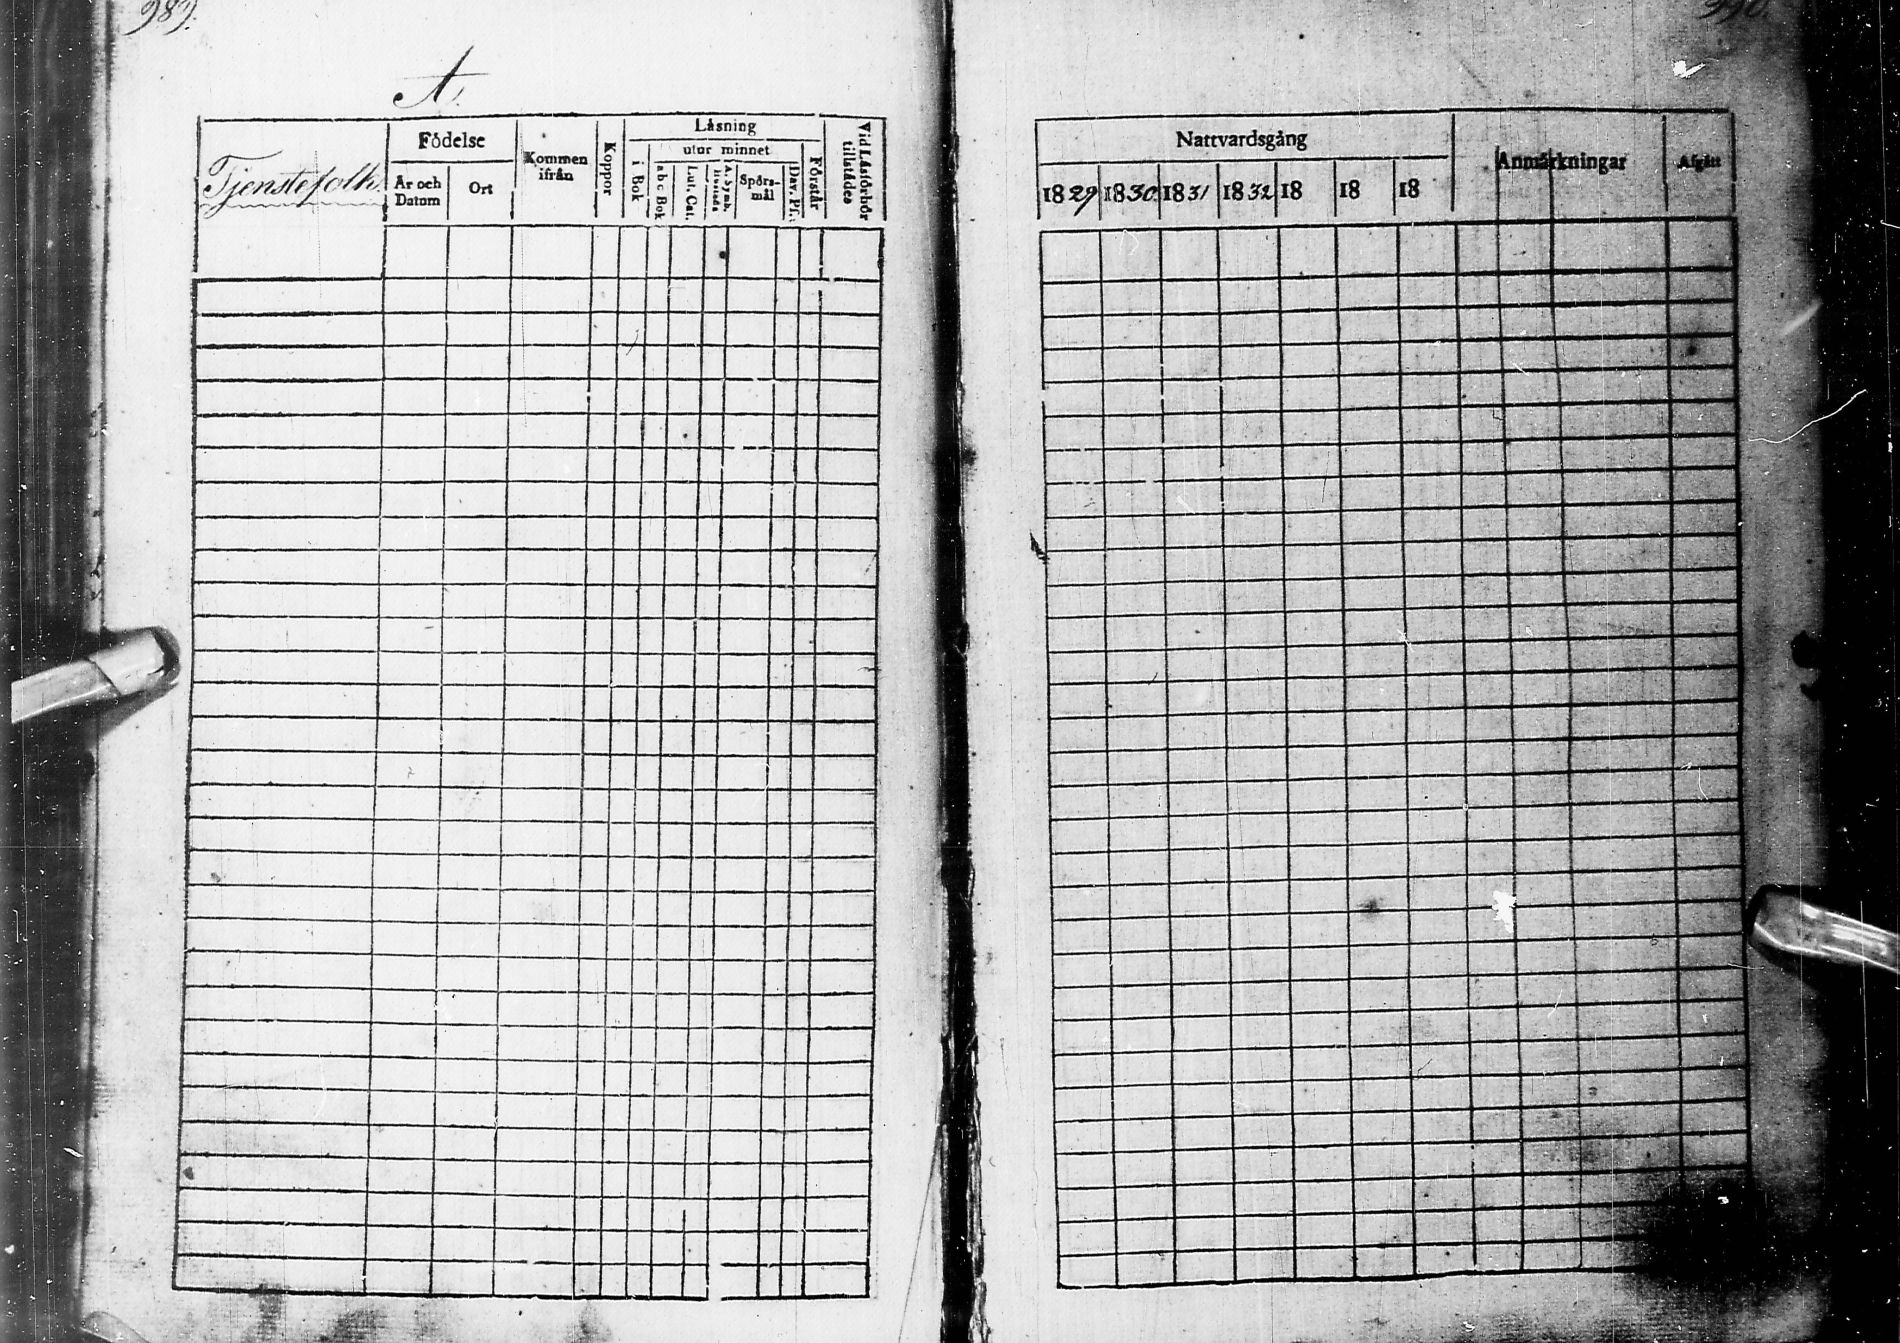 989.
990.
A.
Tjenstefolk.
Födelse
År och Datum
Ort
Kommen ifrån
Koppor
Läsning
i Bok
utur minnet
a b c Bok
Lut. Cat.
Spörsmål
Dav. Ps.
Förstår
Vid Läsförhör tillståde
Nattvardsgång
1829 1830 1831 1832 18 18 18
Anmärkningar
Afgått